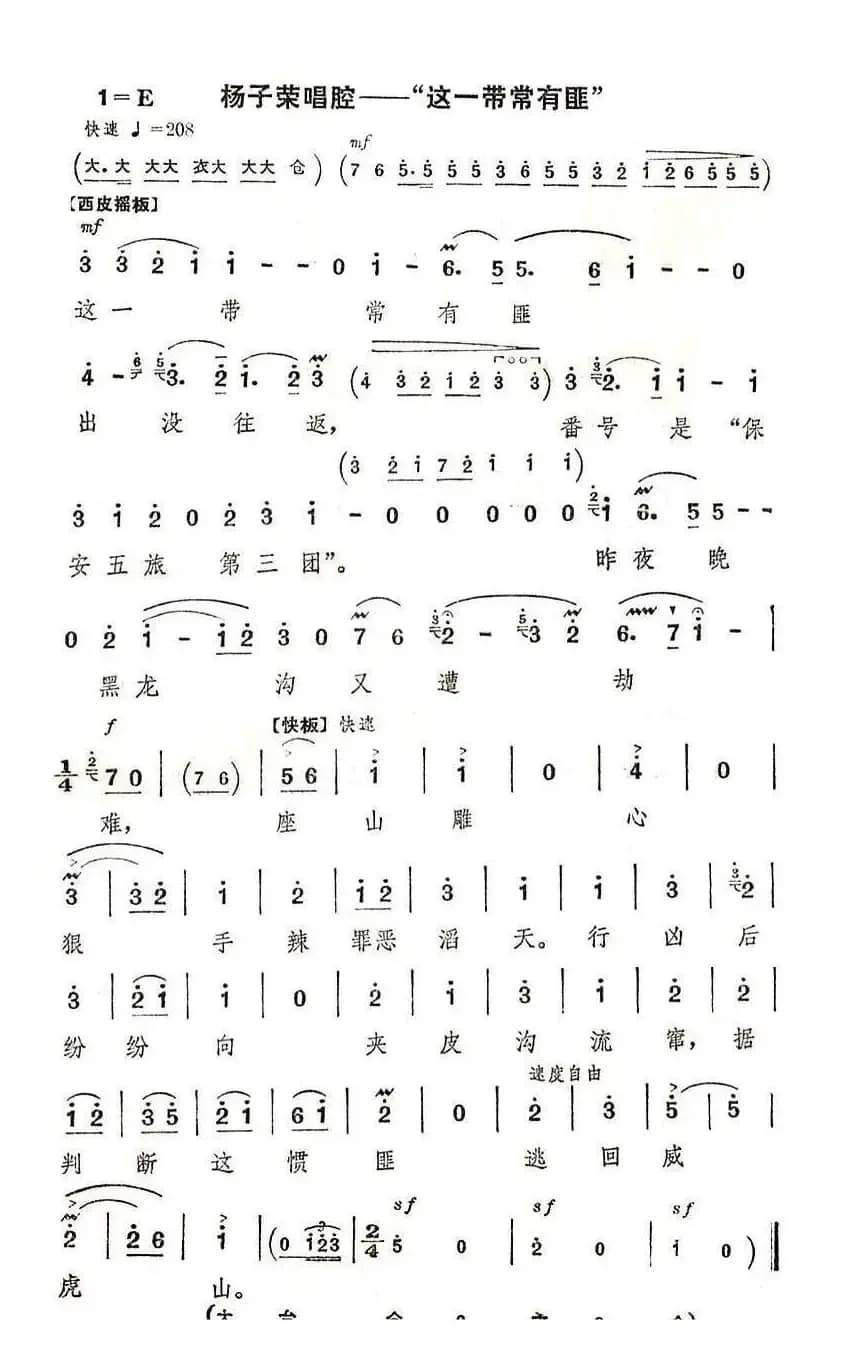 1=E 杨子荣唱腔——“这一带常有匪”
快速 ♩=208
mf
(大. 大 大大 衣大 大大 仓) (7 6 5. 5 5 5 3 6 5 5 3 2 1 2 6 5 5 5)
【西皮摇板】
mf
3 3 2 1 1 - - 0 1 - 6. 5 5. 6 1 - - 0
这一 带 常 有 匪
4 - 3. 2 1. 2 3 (4 3 2 1 2 3 3) 3 2. 1 1 - 1
出 没 往 返, 番 号 是 “保
(3 2 1 7 2 1 1 1)
3 1 2 0 2 3 1 - 0 0 0 0 0 2 1 6. 5 5 - -
安 五 旅 第 三 团”。 昨 夜 晚
0 2 1 - 1 2 3 0 7 6 3 2 - 5 3 2 6. 7 1 - |
黑 龙 沟 又 遭 劫
f 【快板】 快速
1/4 2 7 0 | (7 6) | 5 6 | 1 | 1 | 0 | 4 | 0 |
难, 座 山 雕 心
3 | 3 2 | 1 | 2 | 1 2 | 3 | 1 | 1 | 3 | 3 2 |
狠 手 辣 罪恶 滔 天。 行 凶 后
3 | 2 1 | 1 | 0 | 2 | 1 | 3 | 1 | 2 | 2 |
纷 纷 向 夹 皮 沟 流 窜, 据
速度自由
1 2 | 3 5 | 2 1 | 6 1 | 2 | 0 | 2 | 3 | 5 | 5 |
判 断 这 惯 匪 逃 回 威
sf sf sf
2 | 2 6 | 1 | (0 1 2 3 | 2/4 5 0 | 2 0 | 1 0)
虎 山。